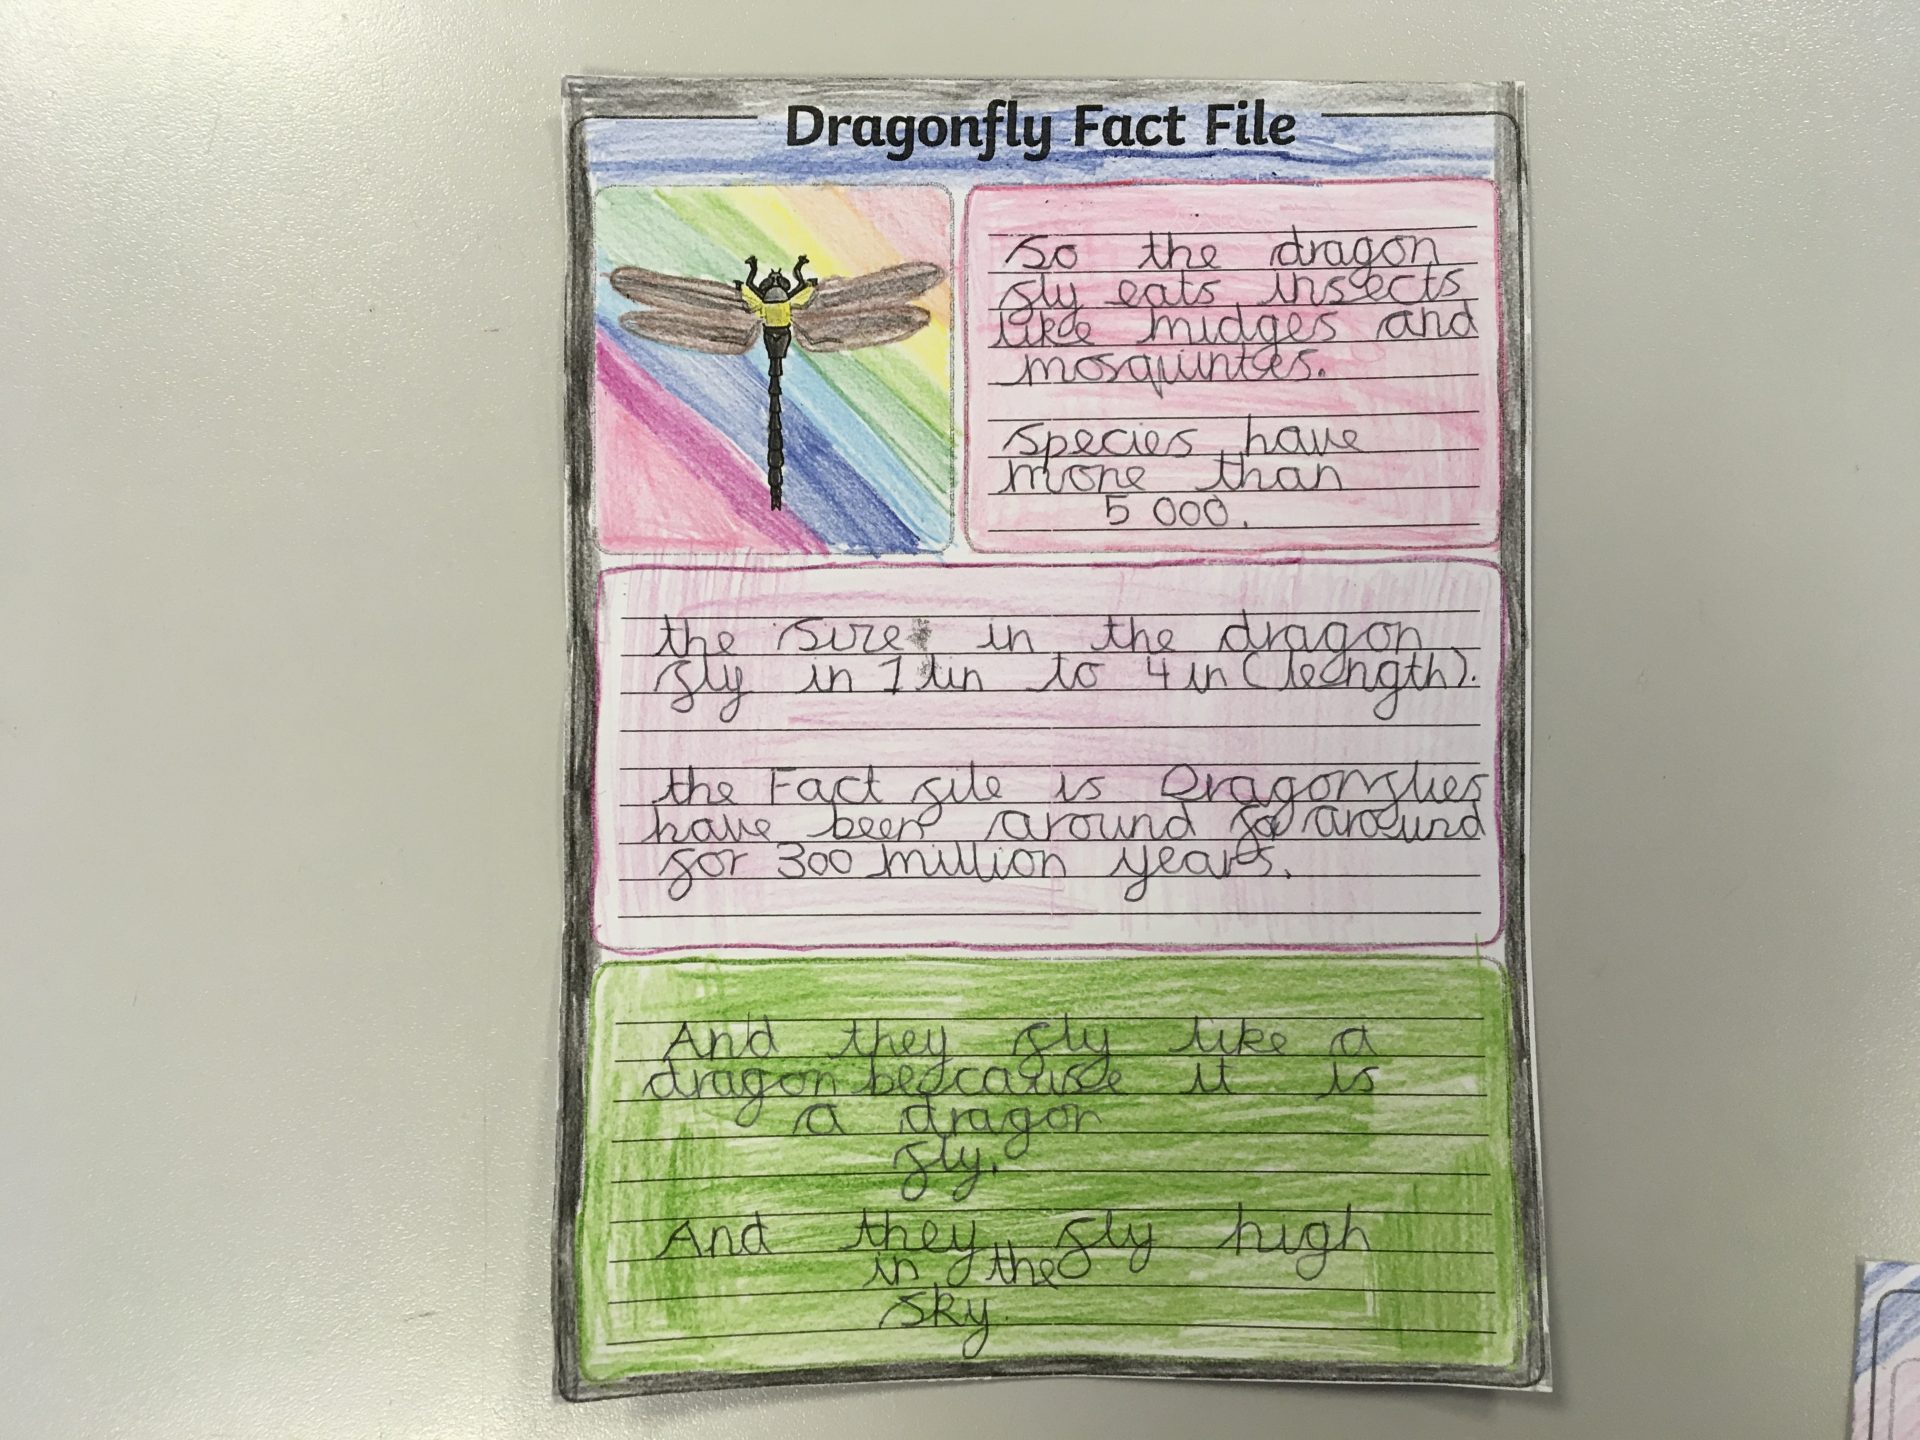 Dragonfly Fact File
So the dragon
fly eats insects
like midges and
mosquintes.
species have
more than
5 000.
the size in the dragon
fly in 1 in to 4 in (leength).
the Fact file is Dragonflies
have been around around
for 300 million years.
And they fly like a
dragon because it is
a dragon
fly.
And they fly high
in the
sky.